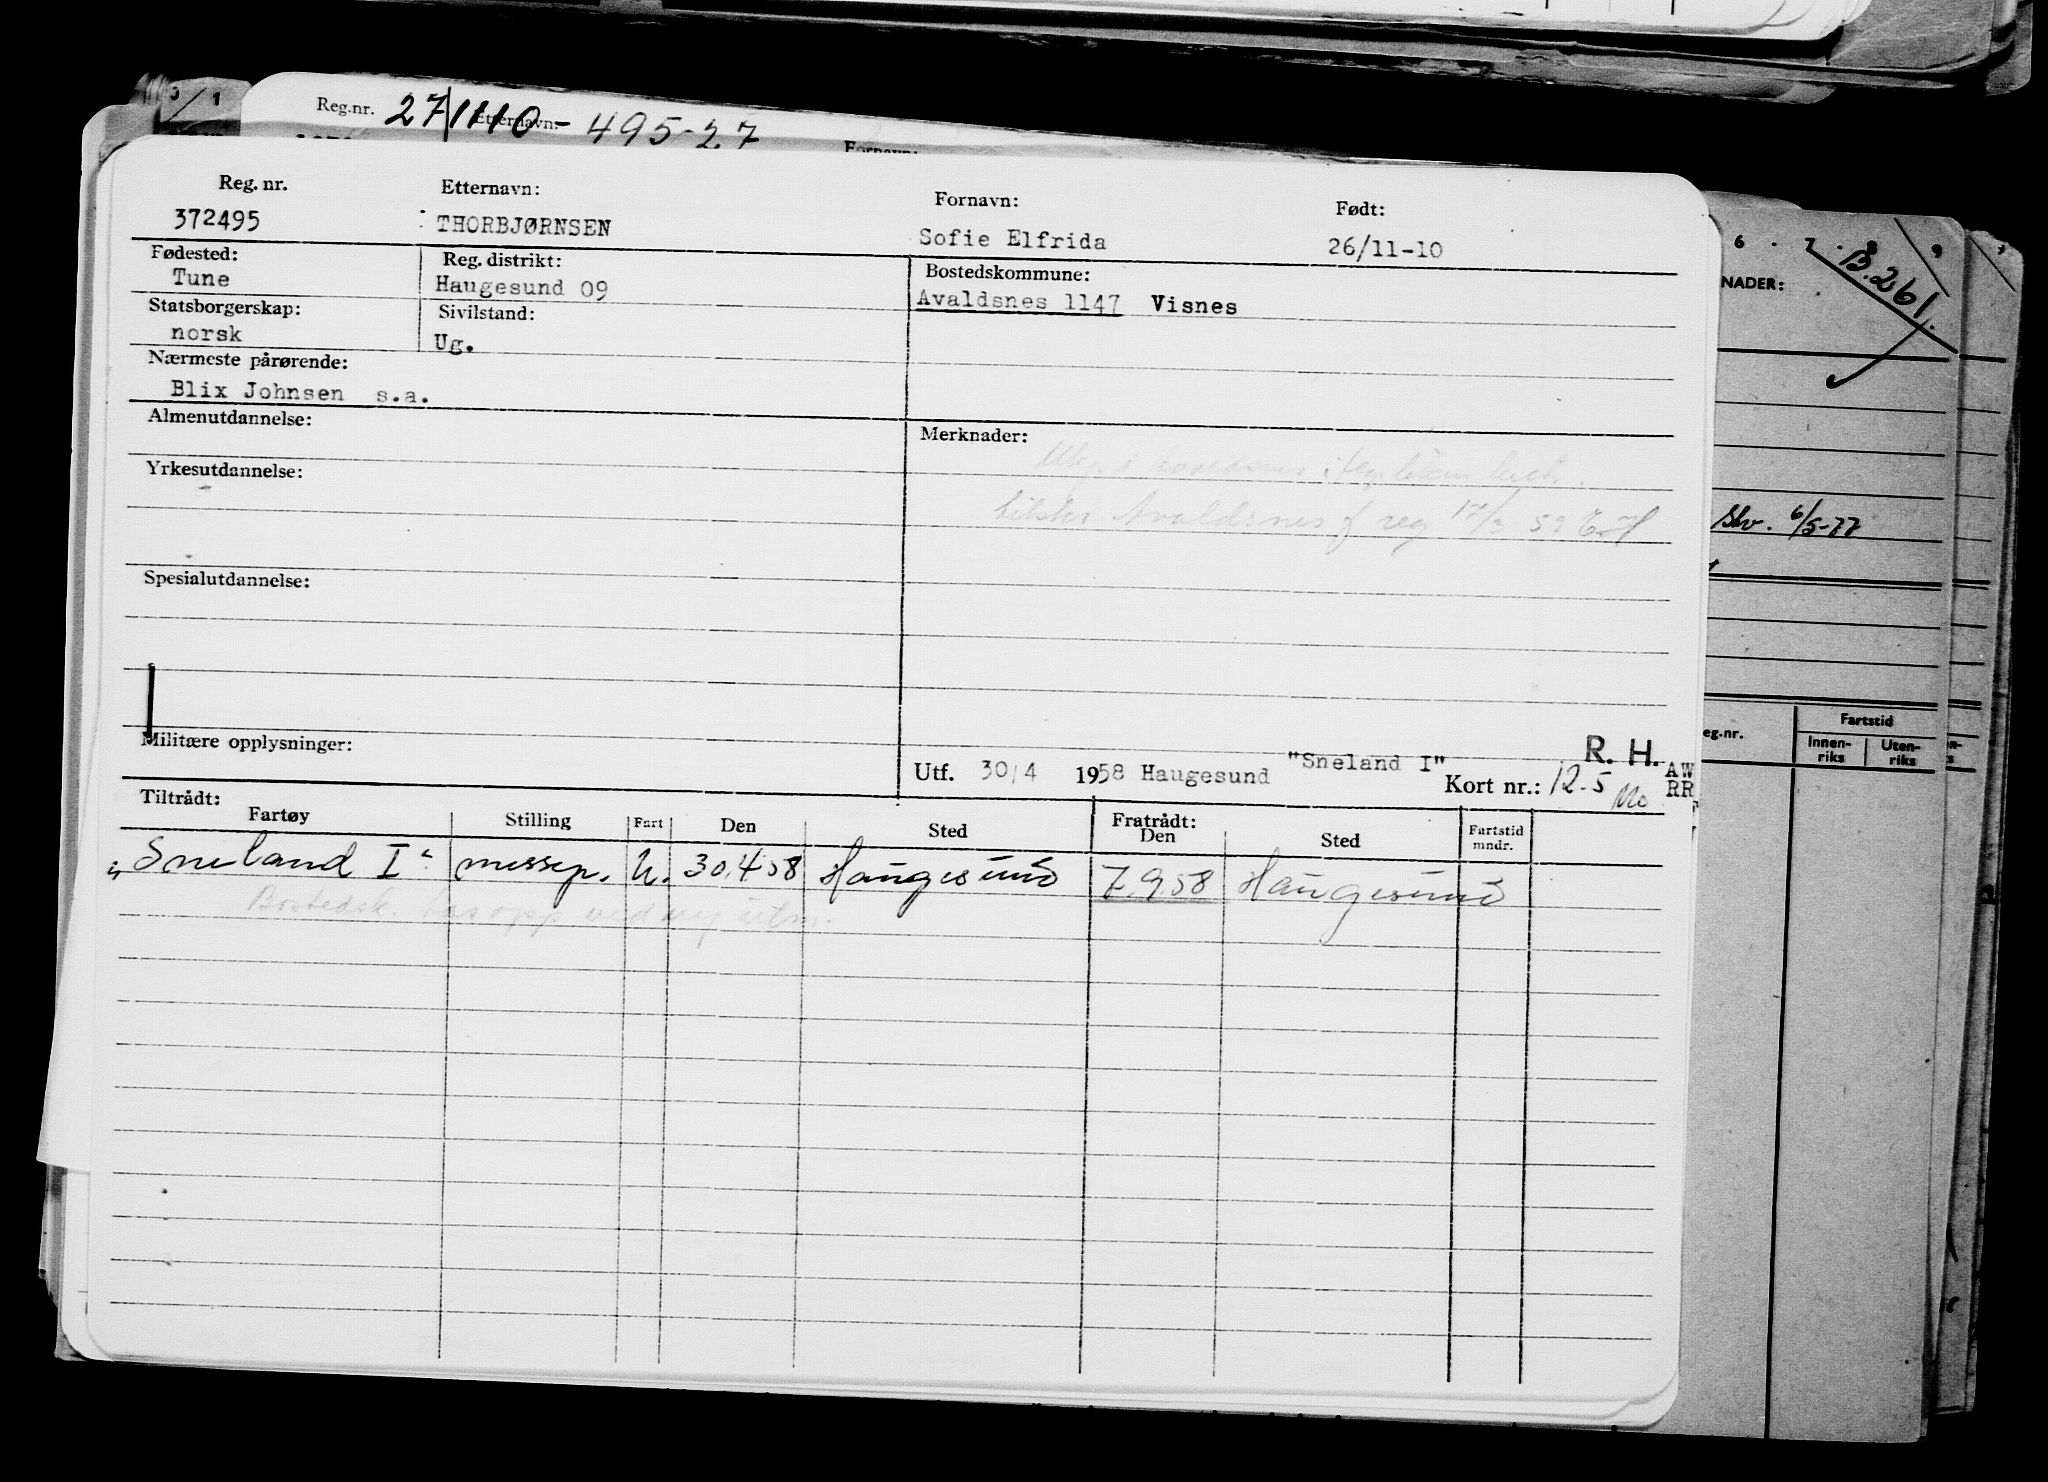 Reg.nr. 27/1110-495-27
Etternavn:
Fornavn:
Reg. nr. Etternavn: Fornavn: Født:
372495 THORBJØRNSEN Sofie Elfrida 26/11-10
Fødested: Reg. distrikt: Bostedskommune:
Tune Haugesund 09 Avaldsnes 1147 Visnes
Statsborgerskap: Sivilstand:
norsk Ug.
Nærmeste pårørende:
Blix Johnsen s.a.
Almenutdannelse: Merknader:
Yrkesutdannelse:
Avaldsnes f reg 17/3 59
Spesialutdannelse:
Militære opplysninger:
R. H.
Utf. 30/4 1958 Haugesund "Sneland I" Kort nr.: 12.5 AW
RR
Tiltrådt: Fratrådt:
Fartøy Stilling Fart Den Sted Den Sted Fartstid mndr.
"Sneland I" messep. U. 30.4.58 Haugesund 7.9.58 Haugesund
Bostedsk. tas opp ved ny utm.
6 . 7 . 8 9
NADER: B.261.
Slv. 6/5-77
eg.nr. Fartstid
Innen-riks Uten-riks